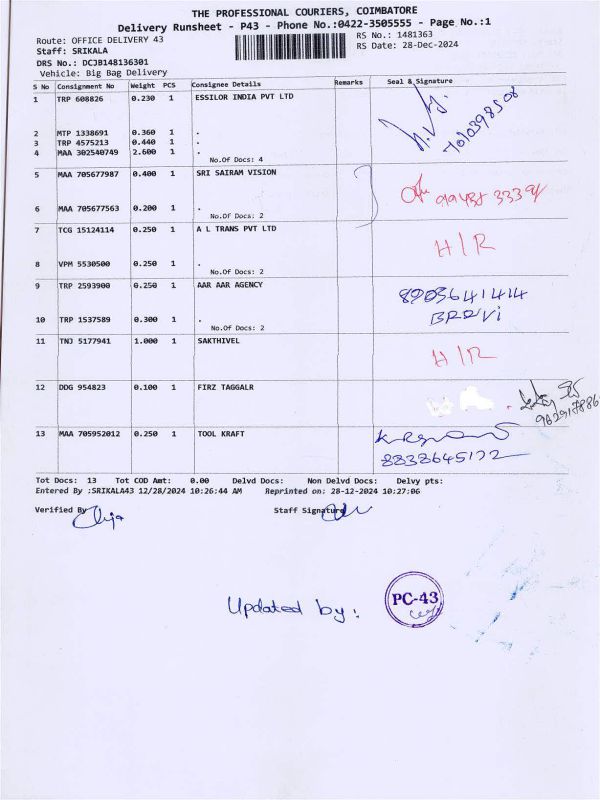 THE PROFESSIONAL COURIERS, COIMBATORE
Delivery Runsheet - P43 - Phone No.:0422-3505555 - Page No.:1
Route: OFFICE DELIVERY 43 RS No.: 1481363
Staff: SRIKALA RS Date: 28-Dec-2024
DRS No.: DCJB148136301
Vehicle: Big Bag Delivery
S No Consignment No Weight PCS Consignee Details Remarks Seal & Signature
1 TRP 608826 0.230 1 ESSILOR INDIA PVT LTD
2 MTP 1338691 0.360 1 .
3 TRP 4575213 0.440 1 .
4 MAA 302540749 2.600 1 .
No.Of Docs: 4
5 MAA 705677987 0.400 1 SRI SAIRAM VISION
6 MAA 705677563 0.200 1 .
No.Of Docs: 2
7 TCG 15124114 0.250 1 A L TRANS PVT LTD
H/R
8 VPM 5530500 0.250 1 .
No.Of Docs: 2
9 TRP 2593900 0.250 1 AAR AAR AGENCY
8903641414
10 TRP 1537589 0.300 1 .
No.Of Docs: 2
11 TNJ 5177941 1.000 1 SAKTHIVEL
H/R
12 DDG 954823 0.100 1 FIRZ TAGGALR
13 MAA 705952012 0.250 1 TOOL KRAFT
8838645172
Tot Docs: 13 Tot COD Amt: 0.00 Delvd Docs: Non Delvd Docs: Delvy pts:
Entered By :SRIKALA43 12/28/2024 10:26:44 AM Reprinted on: 28-12-2024 10:27:06
Verified By Staff Signature
Updated by: PC-43